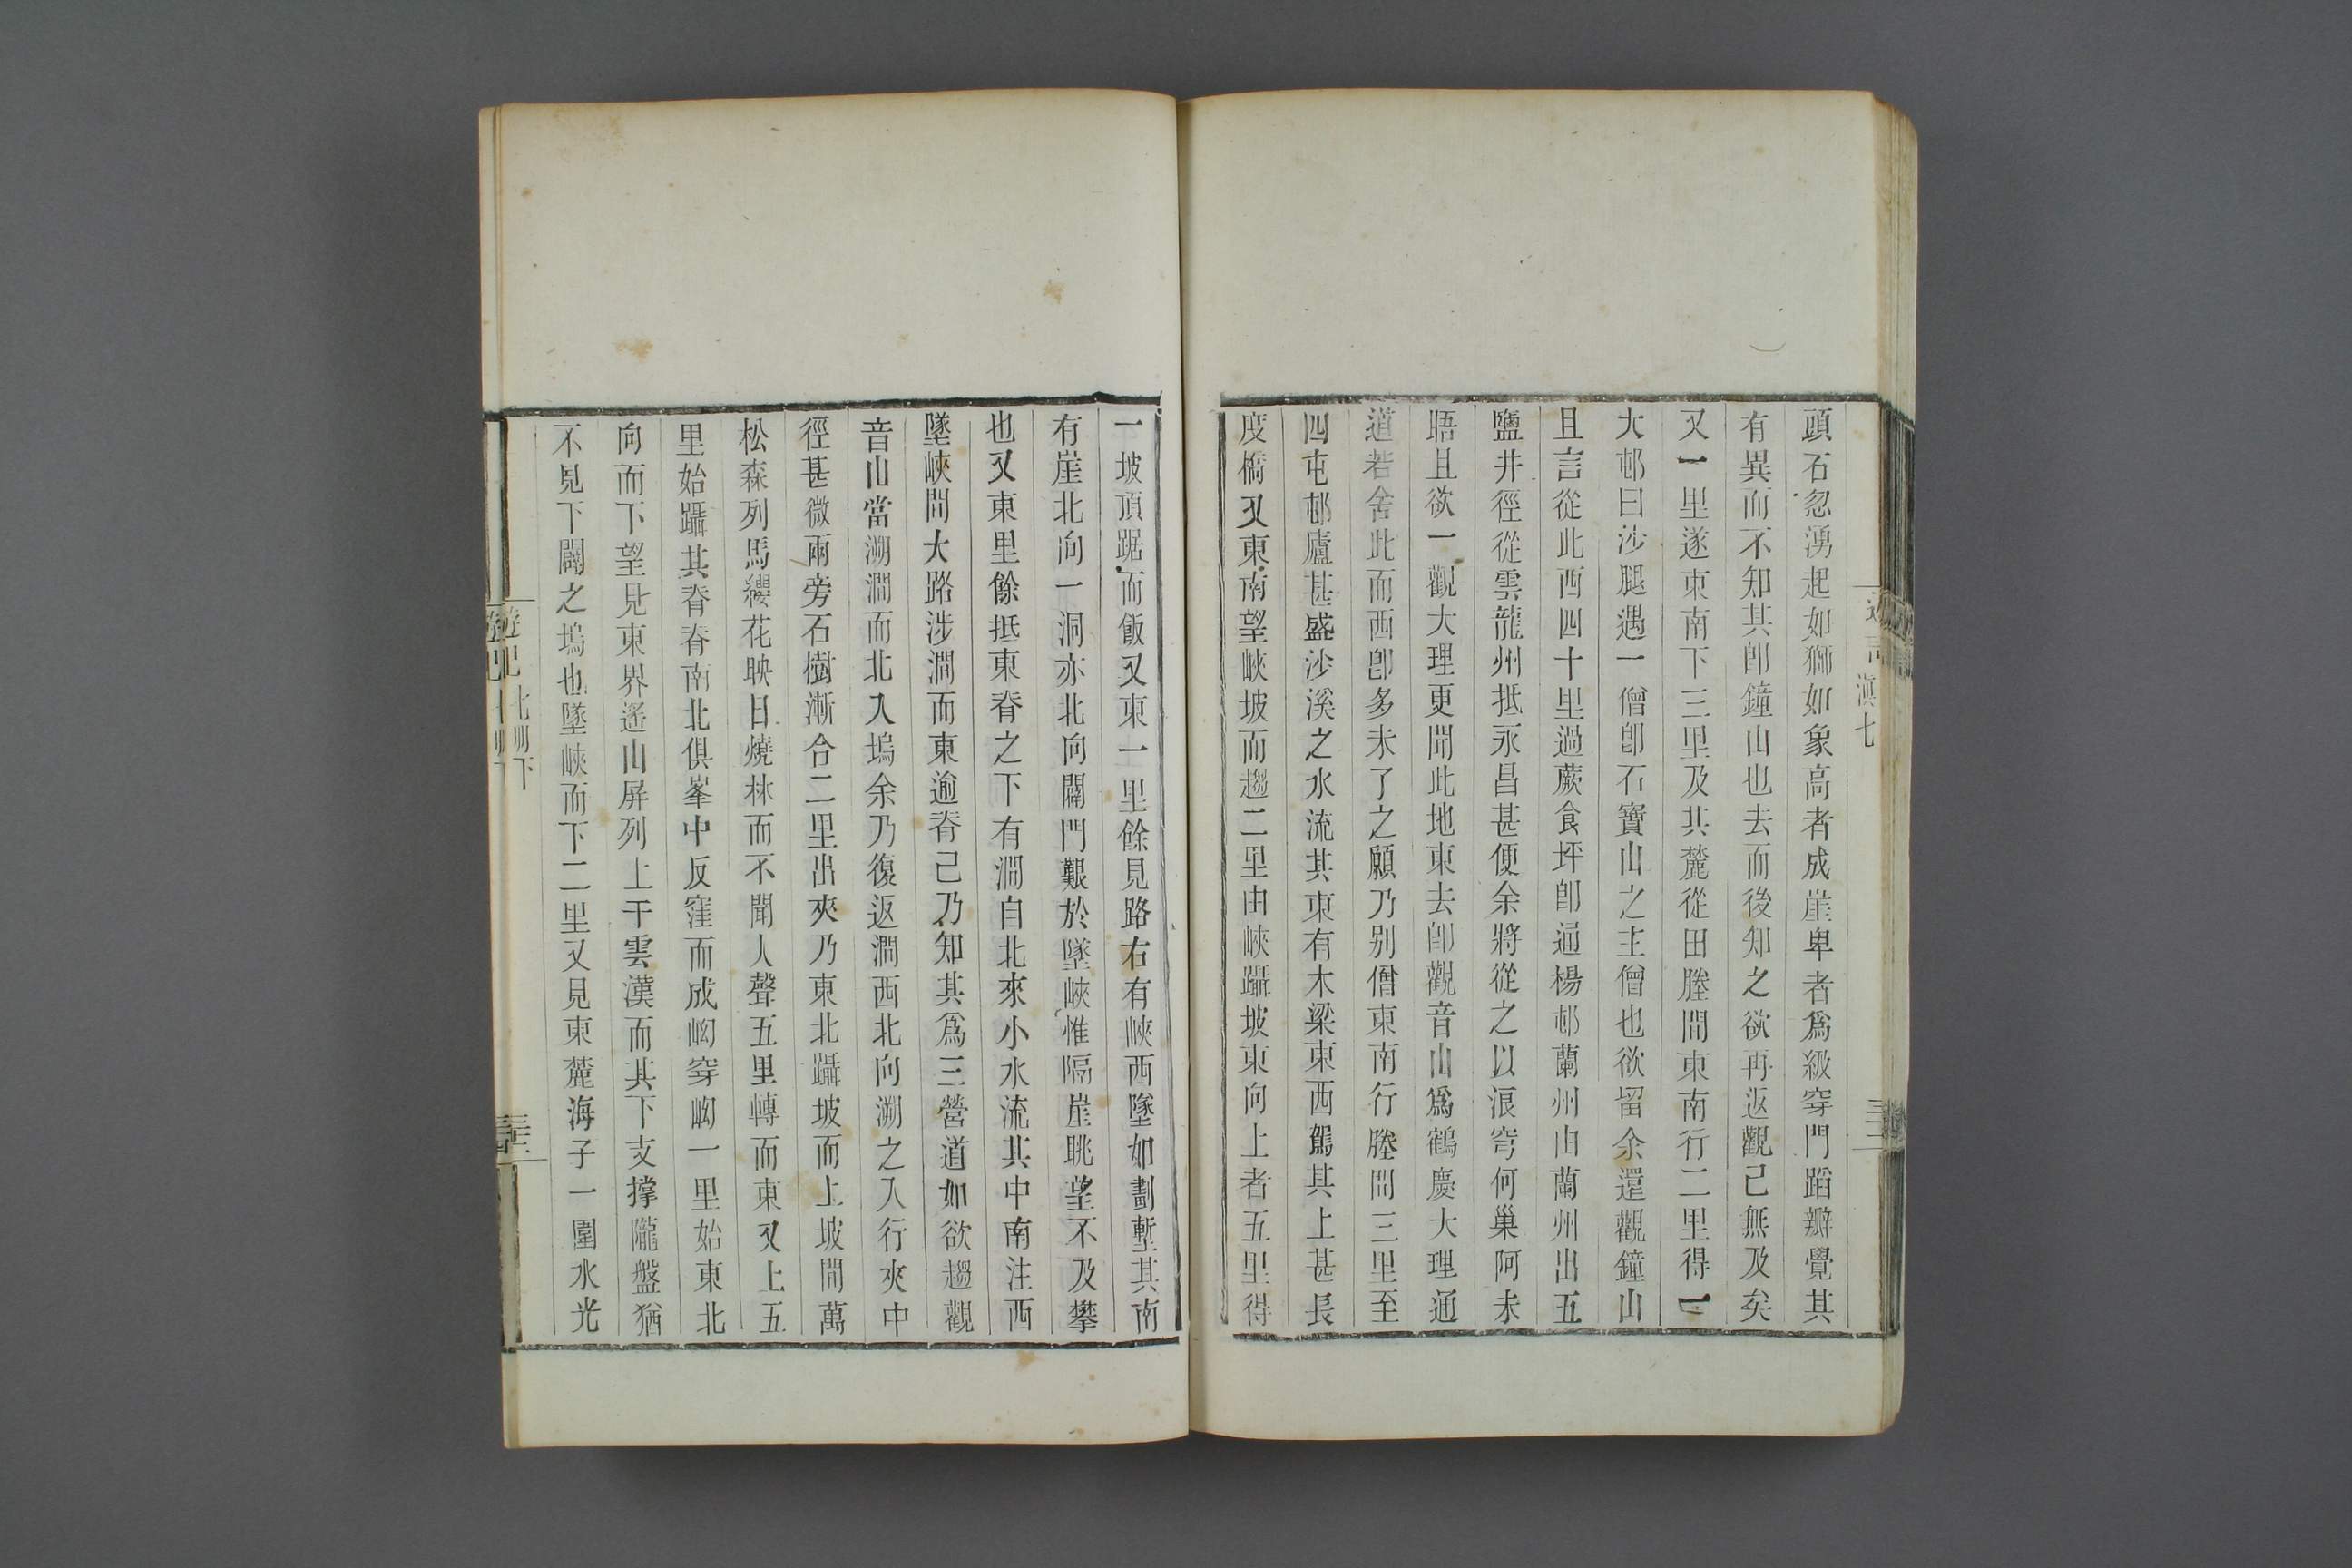 滇七
頭石忽湧起如獅如象高者成崖卑者爲級穿門蹈瓣覺其
有異而不知其卽鐘山也去而後知之欲再返觀已無及矣
又一里遂東南下三里及其麓從田塍間東南行二里得一
大邨曰沙腿遇一僧卽石寶山之主僧也欲留余還觀鐘山
且言從此西四十里過蕨食坪卽通楊邨蘭州由蘭州出五
鹽井徑從雲龍州抵永昌甚便余將從之以浪穹何巢阿未
晤且欲一觀大理更聞此地東去卽觀音山爲鶴慶大理通
道若舍此而西卽多未了之願乃别僧東南行塍間三里至
四屯邨廬甚盛沙溪之水流其東有木梁東西駕其上甚長
度橋又東南望峽坡而趨二里由峽躡坡東向上者五里得
一坡頂踞而飯又東一里餘見路右有峽西墜如劃塹其南
有崖北向一洞亦北向闢門艱於墜峽惟隔崖眺望不及攀
也又東里餘抵東脊之下有澗自北來小水流其中南注西
墜峽間大路涉澗而東逾脊已乃知其爲三營道如欲趨觀
音山當溯澗而北入塢余乃復返澗西北向溯之入行夾中
徑甚微兩旁石樹漸合二里出夾乃東北躡坡而上坡間萬
松森列馬纓花映日燒林而不聞人聲五里轉而東又上五
里始躡其脊脊南北俱峯中反窪而成㘭穿㘭一里始東北
向而下望見東界遙山屏列上干雲漢而其下支撑隴盤猶
不見下闢之塢也墜峽而下二里又見東麓海子一圍水光
遊記